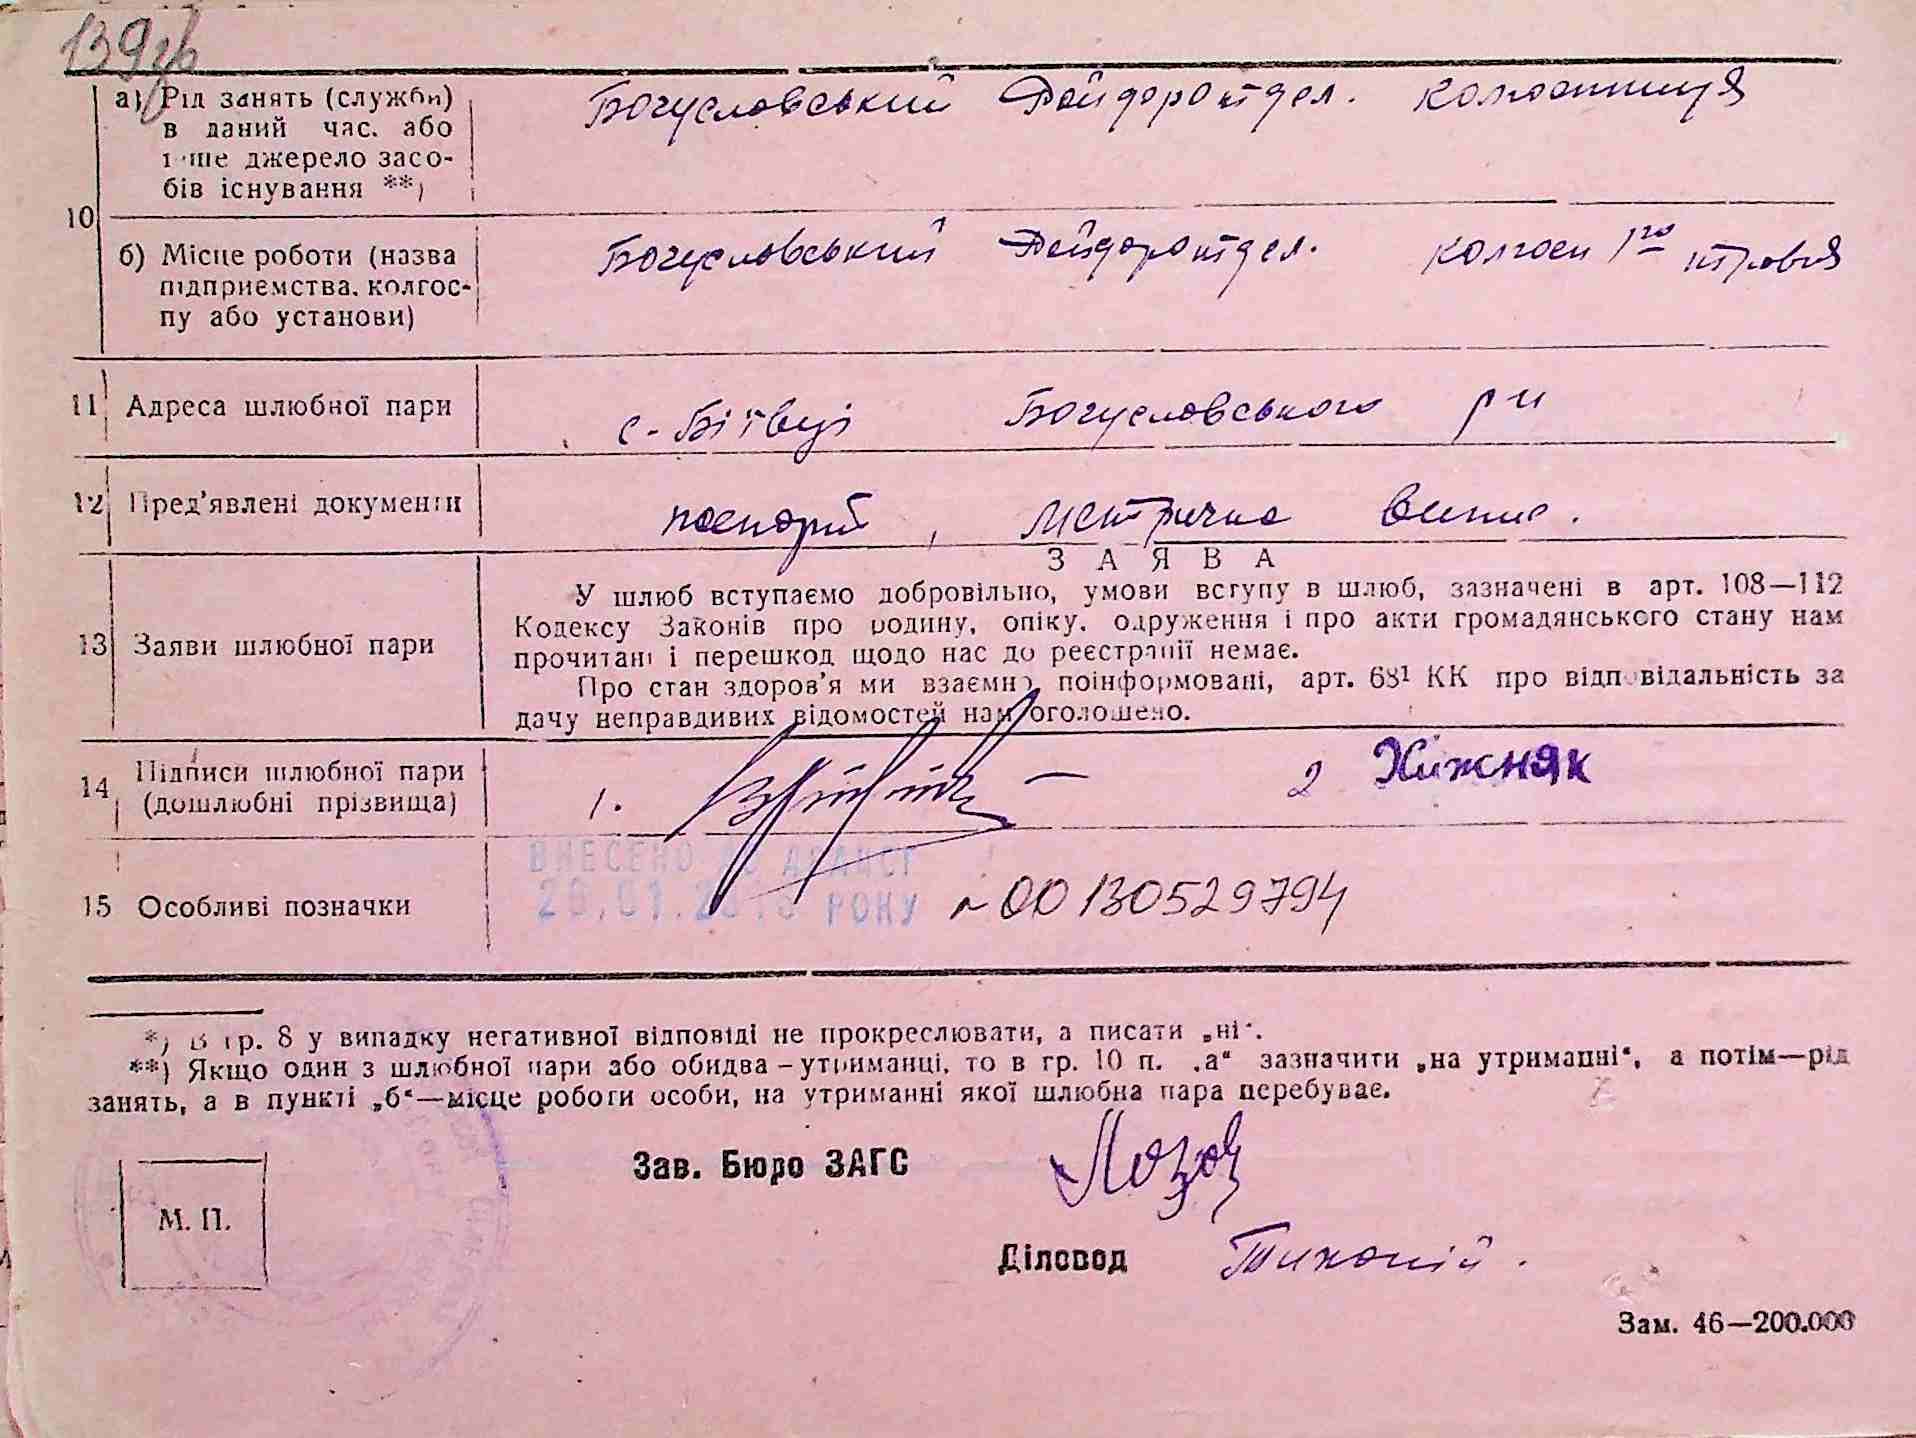 139зв
а) Рід занять (служби) в даний час, або інше джерело засобів існування **)
Богуславський Райдоротдел. колгоспниця
10
б) Місце роботи (назва підприємства, колгоспу або установи)
Богуславський Райдоротдел. колгосп 1го травня
11 Адреса шлюбної пари
с. Бітвці Богуславського р-н
12 Пред'явлені документи
паспорт, метрична випис.
ЗАЯВА
13 Заяви шлюбної пари
У шлюб вступаємо добровільно, умови вступу в шлюб, зазначені в арт. 108—112
Кодексу Законів про родину, опіку, одруження і про акти громадянського стану нам
прочитані і перешкод щодо нас до реєстрації немає.
Про стан здоров'я ми взаємно поінформовані, арт. 68¹ КК про відповідальність за
дачу неправдивих відомостей нам оголошено.
14 Підписи шлюбної пари (дошлюбні прізвища)
1. 2 Хижняк
15 Особливі позначки
ВНЕСЕНО ДО ДРАЦСГ
РОКУ
№ 00130529794
*) В гр. 8 у випадку негативної відповіді не прокреслювати, а писати „ні“.
**) Якщо один з шлюбної пари або обидва – утриманці, то в гр. 10 п. „а“ зазначити „на утриманні“, а потім—рід
занять, а в пункті „б“—місце роботи особи, на утриманні якої шлюбна пара перебуває.
Зав. Бюро ЗАГС Лозов
М. П.
Діловод Тихоній.
Зам. 46—200.000